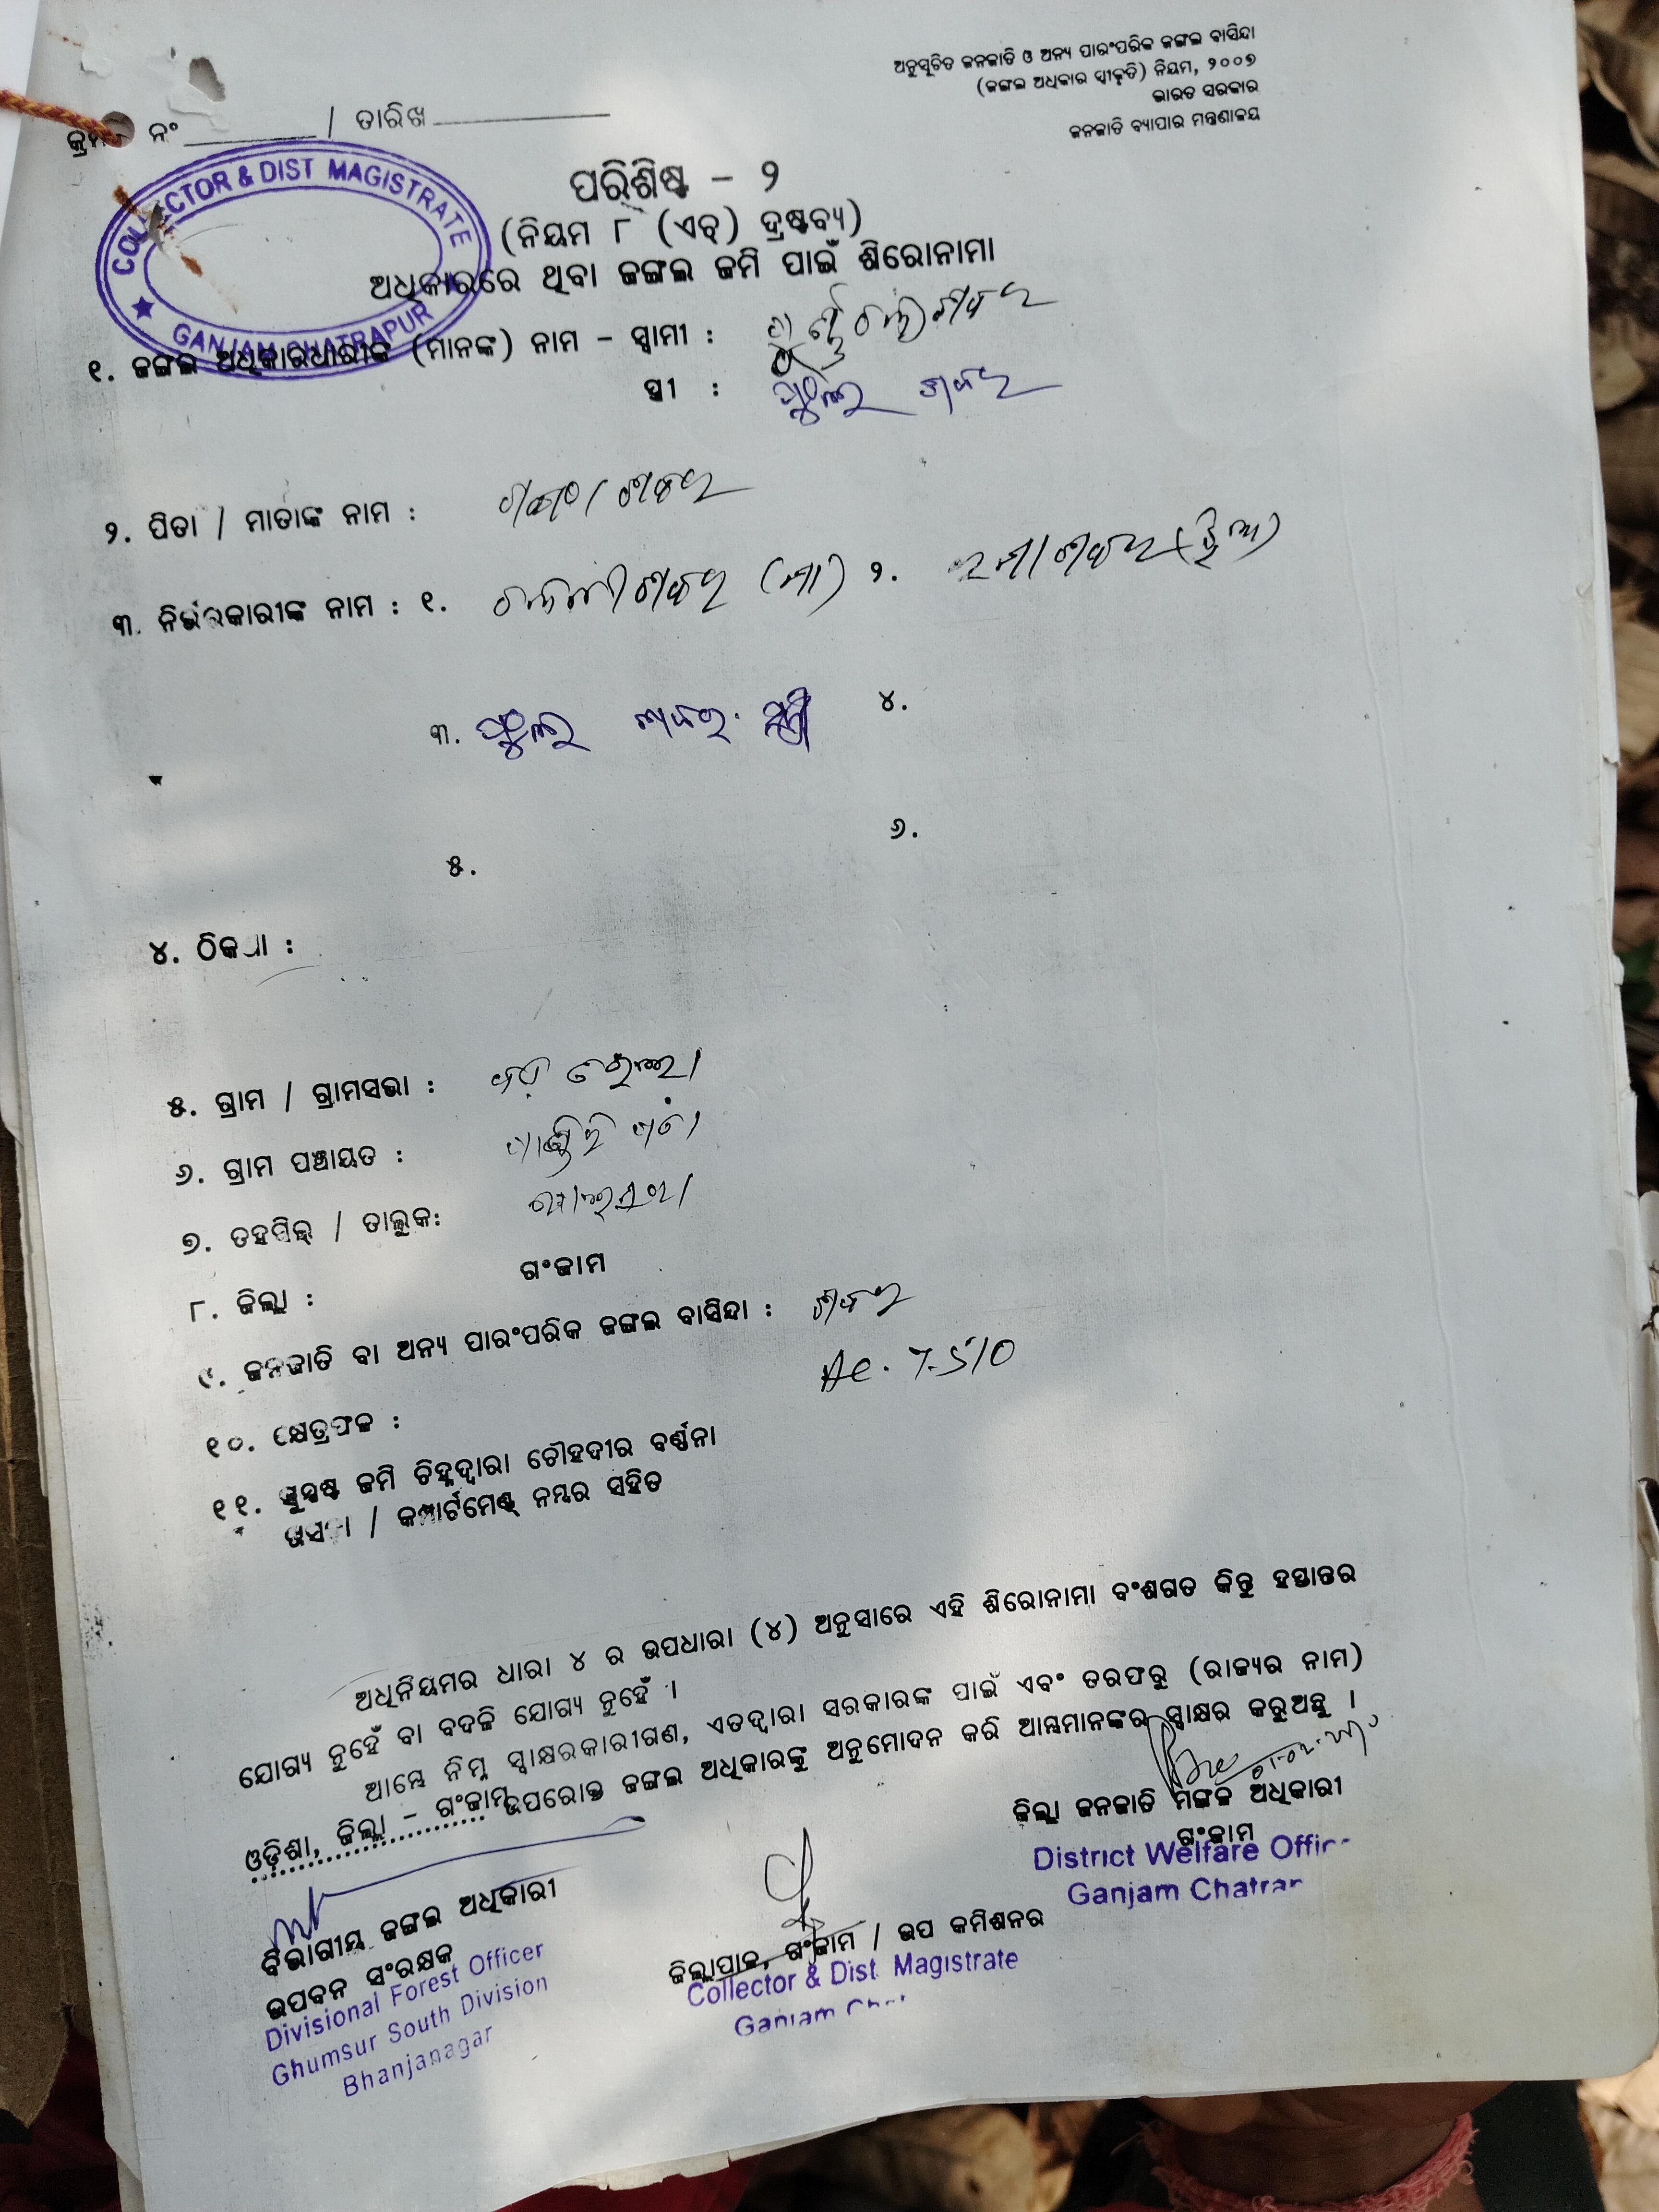 ଅନୁସୂଚିତ ଜନଜାତି ଓ ଅନ୍ୟ ପାରଂପରିକ ଜଙ୍ଗଲ ବାସିନ୍ଦା
(ଜଙ୍ଗଲ ଅଧିକାର ସ୍ବୀକୃତି) ନିୟମ, ୨୦୦୭
ଭାରତ ସରକାର
ଜନଜାତି ବ୍ୟାପାର ମନ୍ତ୍ରଣାଳୟ
ନଂ / ତାରିଖ
COLLECTOR & DIST MAGISTRATE
GANJAM CHATRAPUR
ପରିଶିଷ୍ଟ – ୨
(ନିୟମ ୮ (ଏଚ୍) ଦ୍ରଷ୍ଟବ୍ୟ)
ଅଧିକାରରେ ଥିବା ଜଙ୍ଗଲ ଜମି ପାଇଁ ଶିରୋନାମା
୧. ଜଙ୍ଗଲ ଅଧିକାରଧାରୀଙ୍କ (ମାନଙ୍କ) ନାମ – ସ୍ୱାମୀ : ଶବର
ସ୍ତ୍ରୀ : ଶବର
୨. ପିତା / ମାତାଙ୍କ ନାମ : ଶବର
୩. ନିର୍ଭରକାରୀଙ୍କ ନାମ : ୧. ଶବର (ମା) ୨. ଶବର (ଝିଅ)
୩. ଶବର ସ୍ତ୍ରୀ ୪.
୫. ୬.
୪. ଠିକଣା :
୫. ଗ୍ରାମ / ଗ୍ରାମସଭା :
୬. ଗ୍ରାମ ପଞ୍ଚାୟତ :
୭. ତହସିଲ୍ / ତାଲୁକ:
୮. ଜିଲ୍ଲା : ଗଂଜାମ
୯. ଜନଜାତି ବା ଅନ୍ୟ ପାରଂପରିକ ଜଙ୍ଗଲ ବାସିନ୍ଦା : ଶବର
୧୦. କ୍ଷେତ୍ରଫଳ : Ac. 7.510
୧୧. ସୁସ୍ପଷ୍ଟ ଜମି ଚିହ୍ନଦ୍ୱାରା ଚୌହଦୀର ବର୍ଣ୍ଣନା
ଖସଡା / କମ୍ପାର୍ଟମେଣ୍ଟ୍ ନମ୍ବର ସହିତ
ଅଧିନିୟମର ଧାରା ୪ ର ଉପଧାରା (୪) ଅନୁସାରେ ଏହି ଶିରୋନାମା ବଂଶଗତ କିନ୍ତୁ ହସ୍ତାନ୍ତର
ଯୋଗ୍ୟ ନୁହେଁ ବା ବଦଳି ଯୋଗ୍ୟ ନୁହେଁ ।
ଆମ୍ଭେ ନିମ୍ନ ସ୍ୱାକ୍ଷରକାରୀଗଣ, ଏତଦ୍ୱାରା ସରକାରଙ୍କ ପାଇଁ ଏବଂ ତରଫରୁ (ରାଜ୍ୟର ନାମ)
ଓଡ଼ିଶା, ଜିଲ୍ଲା – ଗଂଜାମ ଉପରୋକ୍ତ ଜଙ୍ଗଲ ଅଧିକାରଙ୍କୁ ଅନୁମୋଦନ କରି ଆମ୍ଭମାନଙ୍କର ସ୍ୱାକ୍ଷର କରୁଅଛୁ ।
ଜିଲ୍ଲା ଜନଜାତି ମଙ୍ଗଳ ଅଧିକାରୀ
ଗଂଜାମ
District Welfare
Ganjam
ବିଭାଗୀୟ ଜଙ୍ଗଲ ଅଧିକାରୀ
ଉପବନ ସଂରକ୍ଷକ
Divisional Forest Officer
Ghumsur South Division
Bhanjanagar
ଜିଲ୍ଲାପାଳ, ଗଂଜାମ / ଉପ କମିଶନର
Collector & Dist. Magistrate
Ganjam